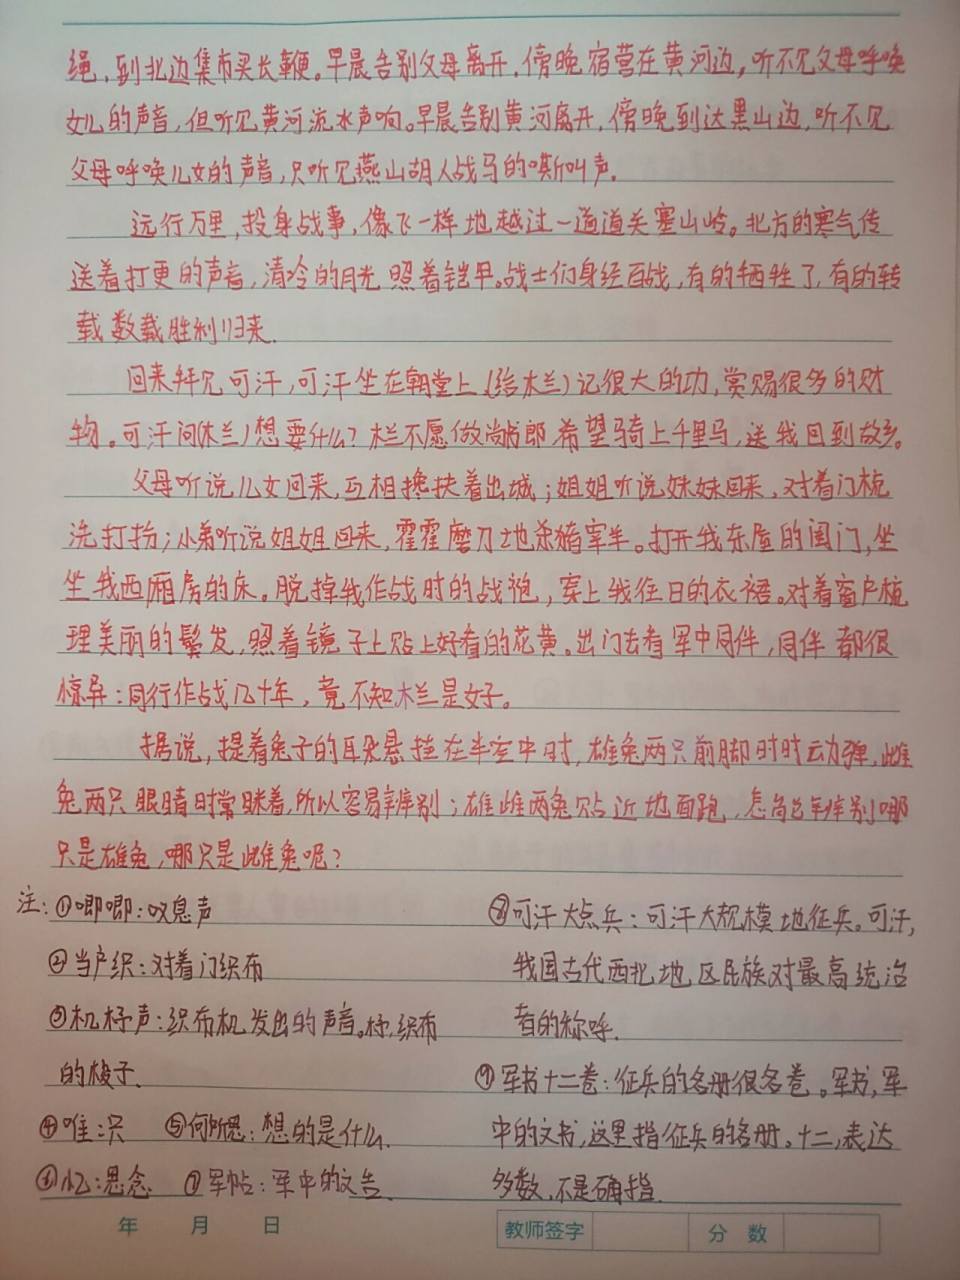 绳，到北边集市买长鞭。早晨告别父母离开，傍晚宿营在黄河边，听不见父母呼唤
女儿的声音，但听见黄河流水声响。早晨告别黄河离开，傍晚到达黑山边，听不见
父母呼唤儿女的声音，只听见燕山胡人战马的嘶叫声。
远行万里，投身战事，像飞一样地越过一道道关塞山岭。北方的寒气传
送着打更的声音，清冷的月光照着铠甲。战士们身经百战，有的牺牲了，有的转
载数载胜利归来。
回来拜见可汗，可汗坐在朝堂上（给木兰）记很大的功，赏赐很多的财
物。可汗问（木兰）想要什么？木兰不愿做尚书郎希望骑上千里马，送我回到故乡。
父母听说儿女回来，互相搀扶着出城；姐姐听说妹妹回来，对着门梳
洗打扮；小弟听说姐姐回来，霍霍磨刀地杀猪宰羊。打开我东屋的阁门，坐
坐我西厢房的床。脱掉我作战时的战袍，穿上我往日的衣裙。对着窗户梳
理美丽的鬓发，照着镜子上贴上好看的花黄。出门去看军中同伴，同伴都很
惊异：同行作战几十年，竟不知木兰是女子。
据说，提着兔子的耳朵悬挂在半空中时，雄兔两只前脚时时动弹，雌
兔两只眼睛时常眯着，所以容易辨别；雄雌两兔贴近地面跑，怎能辨别哪
只是雄兔，哪只是雌兔呢？
注：①唧唧：叹息声
②当户织：对着门织布
③机杼声：织布机发出的声音。杼，织布
的梭子。
④唯：只 ⑤何所思：想的是什么。
⑥忆：思念 ⑦军帖：军中的文告。
⑧可汗大点兵：可汗大规模地征兵。可汗，
我国古代西北地区民族对最高统治
者的称呼。
⑨军书十二卷：征兵的名册很多卷。军书，军
中的文书，这里指征兵的名册。十二，表达
多数，不是确指。
年 月 日
教师签字 分 数